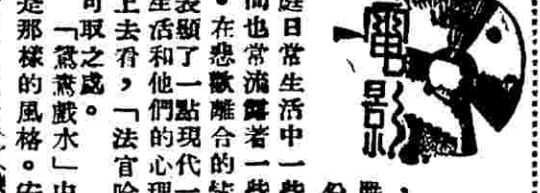 電影
庭日常生活中一些
間也常流露着一些
。在悲歡離合的
表顯了一點現代一
生活和他們的心理
上去看，「法官
可取之處。
「鴛鴦戲水」中
是那樣的風格。